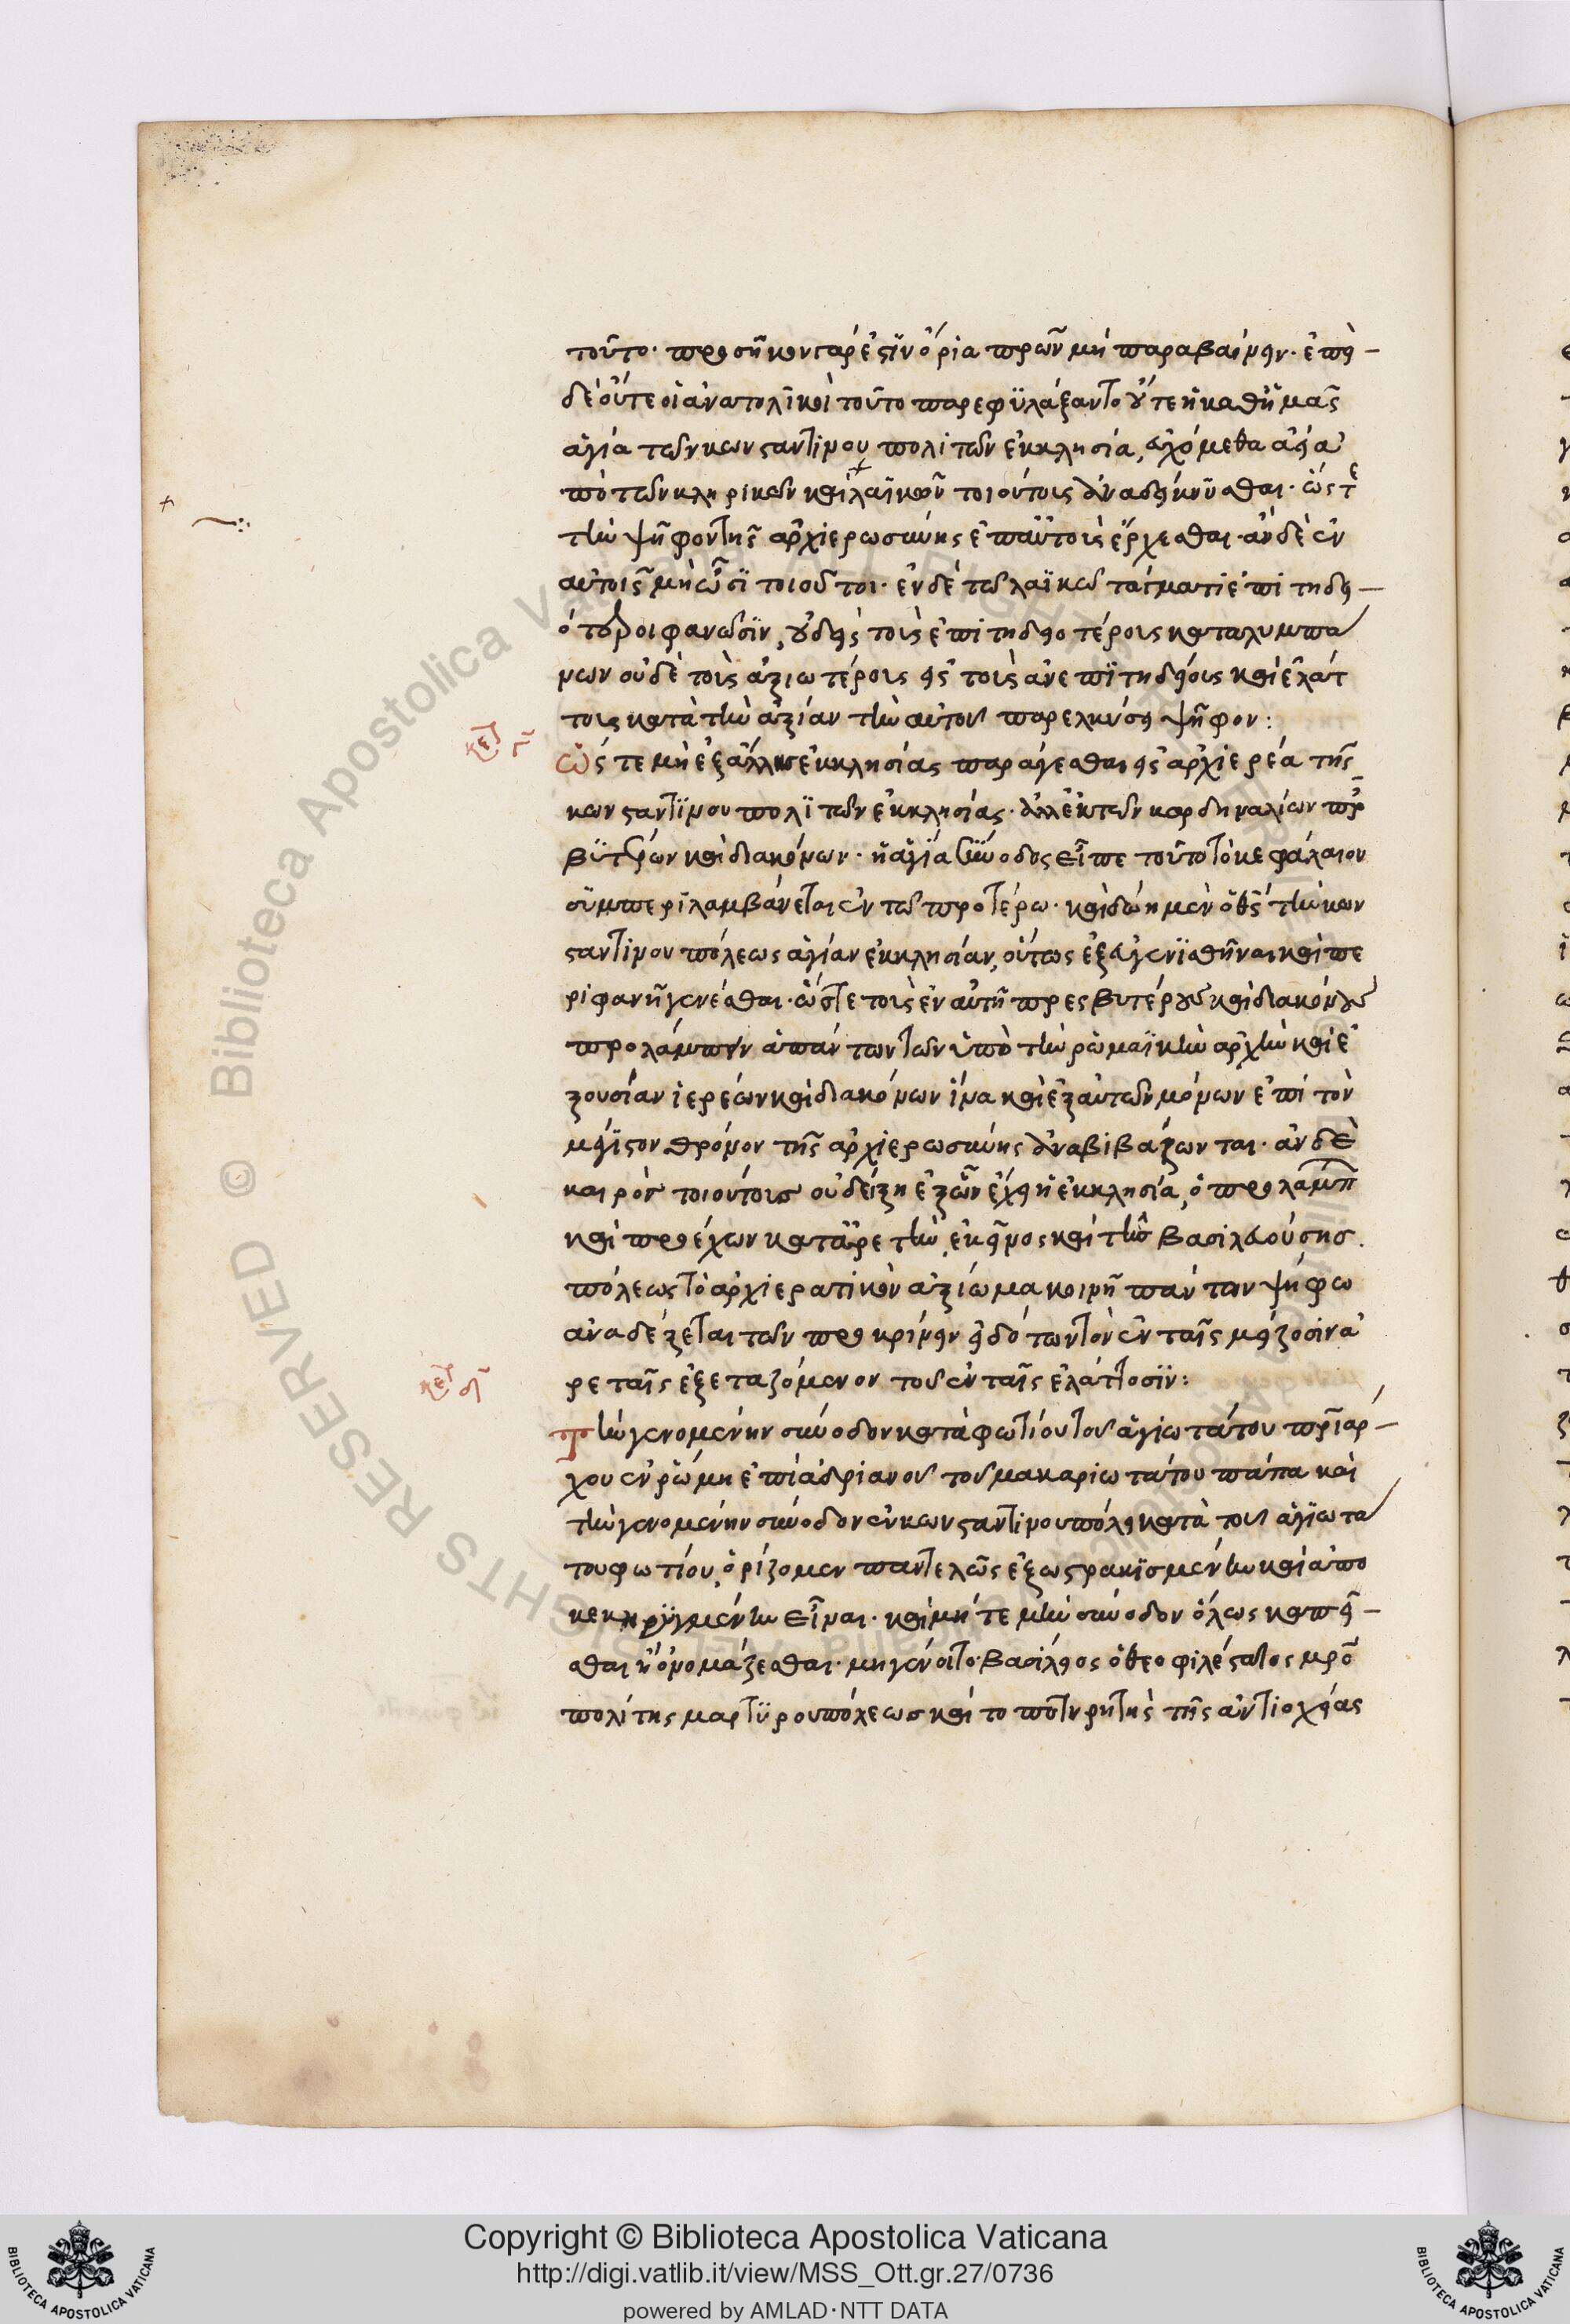 τοῦτο· προσῆκον γάρ ἐστιν ὅρια πρων μὴ παραβαίνειν· ἐπεὶ
δὲ οὔτε οἱ ἀνατολικοὶ τοῦτο παρεφυλάξαντο οὔτε ἡ καθ ἡμᾶς
ἁγία τῶν κωνσταντινουπολιτῶν ἐκκλησία, εὐχόμεθα ἀεὶ ἀ
πὸ τῶν κληρικῶν καὶ λαϊκῶν τοιούτοις ἀναδείκνυσθαι· ὥστε
τὴν ψῆφον τῆς ἀρχιερωσύνης ἐπ αὐτοῖς ἔρχεσθαι· ἂν δὲ ἐν
αὐτοῖς μὴ ὦσι τοιοῦτοι· ἐν δὲ τῶ λαϊκῶ τάγματι ἐπιτηδει
ότεροι φανῶσιν, οὐδεὶς τοῖς ἐπιτηδειοτέροις καταλιμπά
νων οὐδὲ τοῖς ἀξιωτέροις εἰς τοῖς ἀνεπιτηδείοις καὶ ἐλάτ
τοις κατὰ τὴν ἀξίαν τὴν αὐτοῦ παρελκύσει ψῆφον:
κεφ γ
ὥστε μὴ ἐξ ἄλλης ἐκκλησίας παράγεσθαι εἰς ἀρχιερέα τῆς
κωνσταντινουπολιτῶν ἐκκλησίας· ἀλλ ἐκ τῶν καρδηναλίων πρεσ
βυτέρων καὶ διακόνων· ἡ ἁγία σύνοδος εἶπε τοῦτο τὸ κεφάλαιον
συμπεριλαμβάνεται ἐν τῶ προτέρω· καὶ δώη μὲν ὁ θεὸς τὴν κων
σταντινουπόλεως ἁγίαν ἐκκλησίαν, οὕτως ἐξευγενισθῆναι καὶ πε
ριφανῆ γενέσθαι· ὥστε τοὺς ἐν αὐτῆ πρεσβυτέρους καὶ διακόνους
προλάμπειν ἁπάντων τῶν ὑπὸ τὴν ῥωμαϊκὴν ἀρχὴν καὶ ἐ
ξουσίαν ἱερέων καὶ διακόνων ἵνα καὶ ἐξ αὐτῶν μόνων ἐπὶ τὸν
μέγιστον θρόνον τῆς ἀρχιερωσύνης ἀναβιβάζωνται· ἂν δὲ
καιρὸς τοιούτοις οὐ δείξη ἐξ ὧν ἔχει ἡ ἐκκλησία, ὁ προλάμπ
καὶ προέχων κατ ἀρετὴν, ἐκεῖνος καὶ τῆς βασιλευούσης
πόλεως τὸ ἀρχιερατικὸν ἀξίωμα κοινῆ πάντων ψήφω
ἀναδέξεται τῶν προκρίνειν εἰδότων τὸν ἐν ταῖς μείζοσιν ἀ
ρεταῖς ἐξεταζόμενον τοῦ ἐν ταῖς ἐλάττοσιν:
κεφ δ
Τὴν γενομένην σύνοδον κατὰ φωτίου τοῦ ἁγιωτάτου πριαρ
χου ἐν ῥώμη ἐπὶ ἀδριανοῦ τοῦ μακαριωτάτου πάπα καὶ
τὴν γενομένην σύνοδον ἐν κωνσταντινουπόλει κατὰ τοῦ ἁγιωτά
του φωτίου, ὁρίζομεν παντελῶς ἐξωστρακισμένην καὶ ἀπο
κεκηρυγμένην εἶναι· καὶ μήτε μὴν σύνοδον ὅλως καπεῖ
σθαι ἢ ὀνομάζεσθαι· μὴ γένοιτο· βασίλειος ὁ θεοφιλέστατος μρο
πολίτης μαρτυρουπόλεως καὶ τοποτηρητὴς τῆς ἀντιοχείας
Copyright © Biblioteca Apostolica Vaticana
http://digi.vatlib.it/view/MSS_Ott.gr.27/0736
powered by AMLAD·NTT DATA